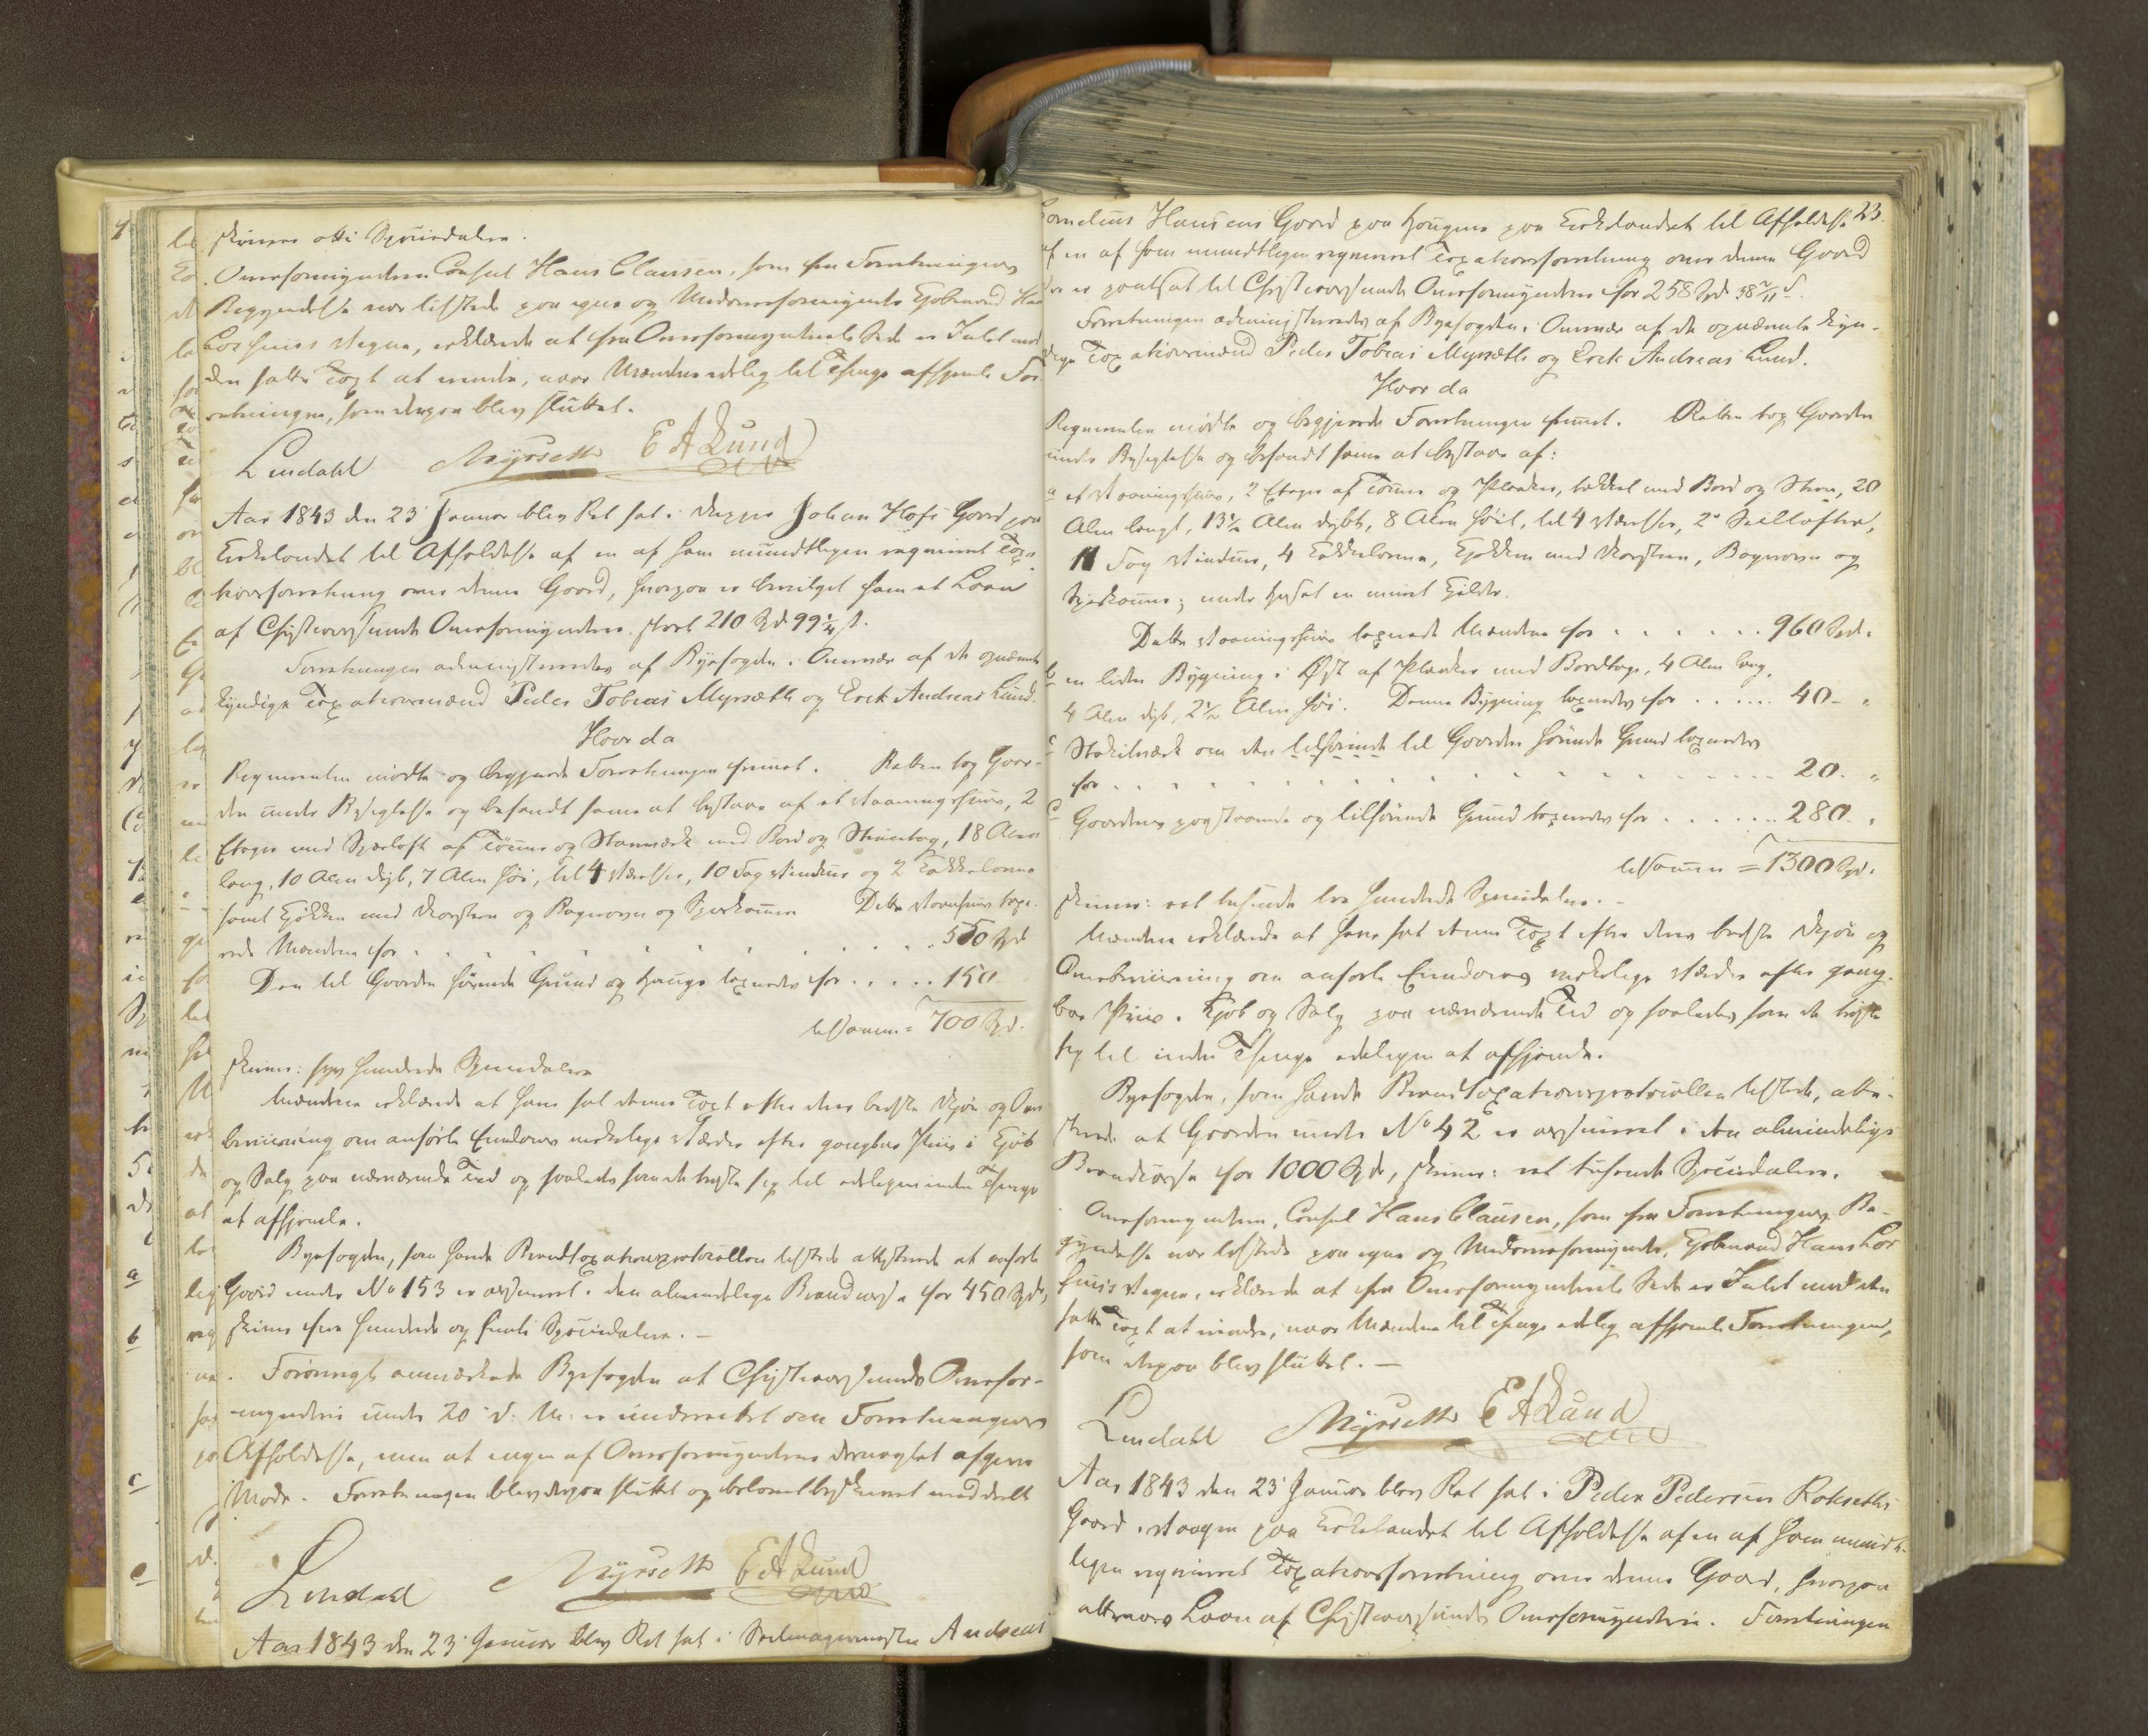 skriver otti Speciedaler.
Overformynderen Consul Hans Clausen, som fra Forretningens
Begyndelse var tilstede paa egne og Medoverformynder Kjøbmand Hans
Lossius's Vegne, erklærede at fra Overformynderiets Side er Intet mod
den satte Taxt at erindre, naar Mændene edelig til Thinge afhjemle For-
retningen, som derpaa blev sluttet.
Lindahl Myrseth E A Lund
Aar 1843 den 23 Januar blev Ret sat i Johan Hofs Gaard paa
Kirkelandet til Afholdelse af en af ham mundtligen reqvireret Taxa-
tionsforretning over denne Gaard, hvorpaa er bevilget ham et Laan
af Christianssunds Overformynderie, stort 210 Spd 99 1/4 s.
Forretningen administreredes af Byefogden i Overvær af de opnævnte
kyndige Taxationsmænd Peder Tobias Myrsæth og Erik Andreas Lund.
Hvorda
Reqvirenten mødte og begjerede Forretningen fremmet. Retten tog Gaar-
den under Besigtelse og befandt samme at bestaae af et Vaaningshuus, 2
Etager med Spærloft af Tømmer og Stavværk med Bord og Steentag, 18 Alen
lang, 10 Alen dyb, 7 Alen høi, til 4 Værelser, 10 Fag Vinduer og 2 Kakkelovne
samt Kjøkken med Skorsteen og Bagerovn og Spiiskammer. Dette Vaanhuus taxe-
rede Mændene for . . . . . . . . . . 550 Spd
Den til Gaarden hørende Grund og Hauge taxeredes for . . . . . 150
tilsammen = 700 Spd.
skriver: syv hundrede Speciedaler
Mændene erklærede at have sat denne Taxt efter deres bedste Skjøn og Over-
beviisning om anførte Eiendoms virkelige Værdie efter gangbar Priis i Kjøb
og Salg paa nærværende Tid og saaledes som de trøste sig til edeligen inden Thinge
at afhjemle.
Byefogden, som havde Brandtaxationsprotocollen tilstede attesterede at anførte
Gaard under No 153 er assureret i den almindelige Brandcasse for 450 Spd,
skriver fire hundrede og femti Speciedaler. —
Forøvrigt anmærkede Byefogden at Christianssunds Overfor-
mynderie under 20 d: M: er underrettet om Forretningens
Afholdelse, men at ingen af Overformynderne derved afgave
Møde. Forretningen blev derpaa sluttet og beskrevet meddeelt
Lindahl Myrseth E A Lund
Aar 1843 den 23 Januar blev Ret sat i Seilmagermester Andreas
23.
Cornelius Hansens Gaard paa Haugene paa Kirkelandet til Afholdelse
af en af ham mundtligen reqvireret Taxationsforretning over denne Gaard
der er pantsat til Christianssunds Overformynderie for 258 Spd 38 2/11 s.
Forretningen administreredes af Byefogden i Overvær af de opnævnte kyn-
dige Taxationsmænd Peder Tobias Myrsæth og Erik Andreas Lund.
Hvor da
Reqvirenten mødte og begjerede Forretningen fremmet. Retten tog Gaarden
under Besigtelse og befandt samme at bestaae af:
a et Vaaningshuus, 2 Etager af Tømmer og Planker, tækket med Bord og Steen, 20
Alen langt, 13 1/2 Alen dybt, 8 Alen høit, til 4 Værelser, 2de Seillofter,
11 Fag Vinduer, 4 Kakkelovne, Kjøkken med Skorsteen, Bagerovn og
Spiiskammer; under Huset en muret Kjelder.
Dette Vaaningshuus taxerede Mændene for . . . . . . 960 Spd.
b en liden Bygning i Øst af Planker med Bordtage, 4 Alen lang,
4 Alen dyb, 2 1/2 Alen høi. Denne Bygning taxeredes for . . . . . . 40 - "
c Stakitværk om den tilhørende til Gaarden hørende Grund taxeredes
for . . . . . . . . . . . . . . . . 20. "
d Gaardens paastaaende og tilhørende Grund taxeredes for . . . . . . . 280. "
tilsammen = 1300 Spd.
skriver: eet tusinde tre hundrede Speciedaler. -
Mændene erklærede at have sat denne Taxt efter deres bedste Skjøn og
Overbeviisning om anførte Eiendoms virkelige Værdie efter gang-
bar Priis i Kjøb og Salg paa nærværende Tid og saaledes som de trøste
sig til inden Thinge edeligen at afhjemle.
Byefogden, som havde Brandtaxationsprotocollen tilstede, atte-
sterede at Gaarden under No 42 er assureret i den almindelige
Brandcasse for 1000 Spd, skriver: eet tusinde Speciedaler.
Overformynderen, Consul Hans Clausen, som fra Forretningens Be-
gyndelse var tilstede paa egne og Medoverformynder, Kjøbmand Hans Los-
sius's Vegne, erklærede at fra Overformynderiets Side er Intet mod den
satte Taxt at erindre, naar Mændene til Thinge edelig afhjemle Forretningen,
som derpaa blev sluttet. —
Lindahl Myrseth E A Lund
Aar 1843 den 23 Januar blev Ret sat i Peder Pedersen Rokseths
Gaard i Vaagen paa Kirkelandet til Afholdelse af en af ham mundt-
ligen reqvireret Taxationsforretning over denne Gaard, hvorpaa
attraaes Laan af Christianssunds Overformynderie. Forretningen